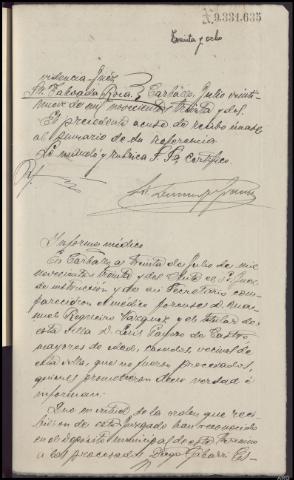 9.331.635
Treinta y ocho
Providencia Juez
Sr. Taboada Roca. Carballo, Julio veinti-
nueve de mil novecientos treinta y dos.
El precedente acuse de recibo únase
al sumario de su referencia.
Lo mandó y rubrica S. Sª certifico.
Informe médico
En Carballo a treinta de Julio de mil
novecientos treinta y dos. Ante el Sr. Juez
de instrucción y de mi Secretario com-
parecieron el médico forense D. Manuel
Regueiro y el titular de
esta Villa D. Luis de Castro
mayores de edad, casados, vecinos de
esta villa, que no fueron procesados,
quienes prometieron decir verdad e
informan:
Que en virtud de la orden que reci-
bieron de este Juzgado han reconocido
en el depósito municipal de este término
a los procesados Diego